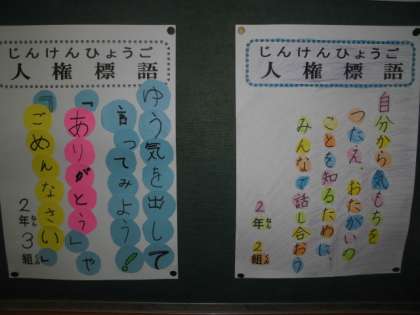 じんけんひょうご
人権標語
ゆう気を出して
言ってみよう!
「ありがとう」や
「ごめんなさい」
2年3組
ねん くみ
じんけんひょうご
人権標語
自分から気もちを
つたえ、おたがいの
ことを知るために、
みんなで話し合おう
2年2組
ねん くみ